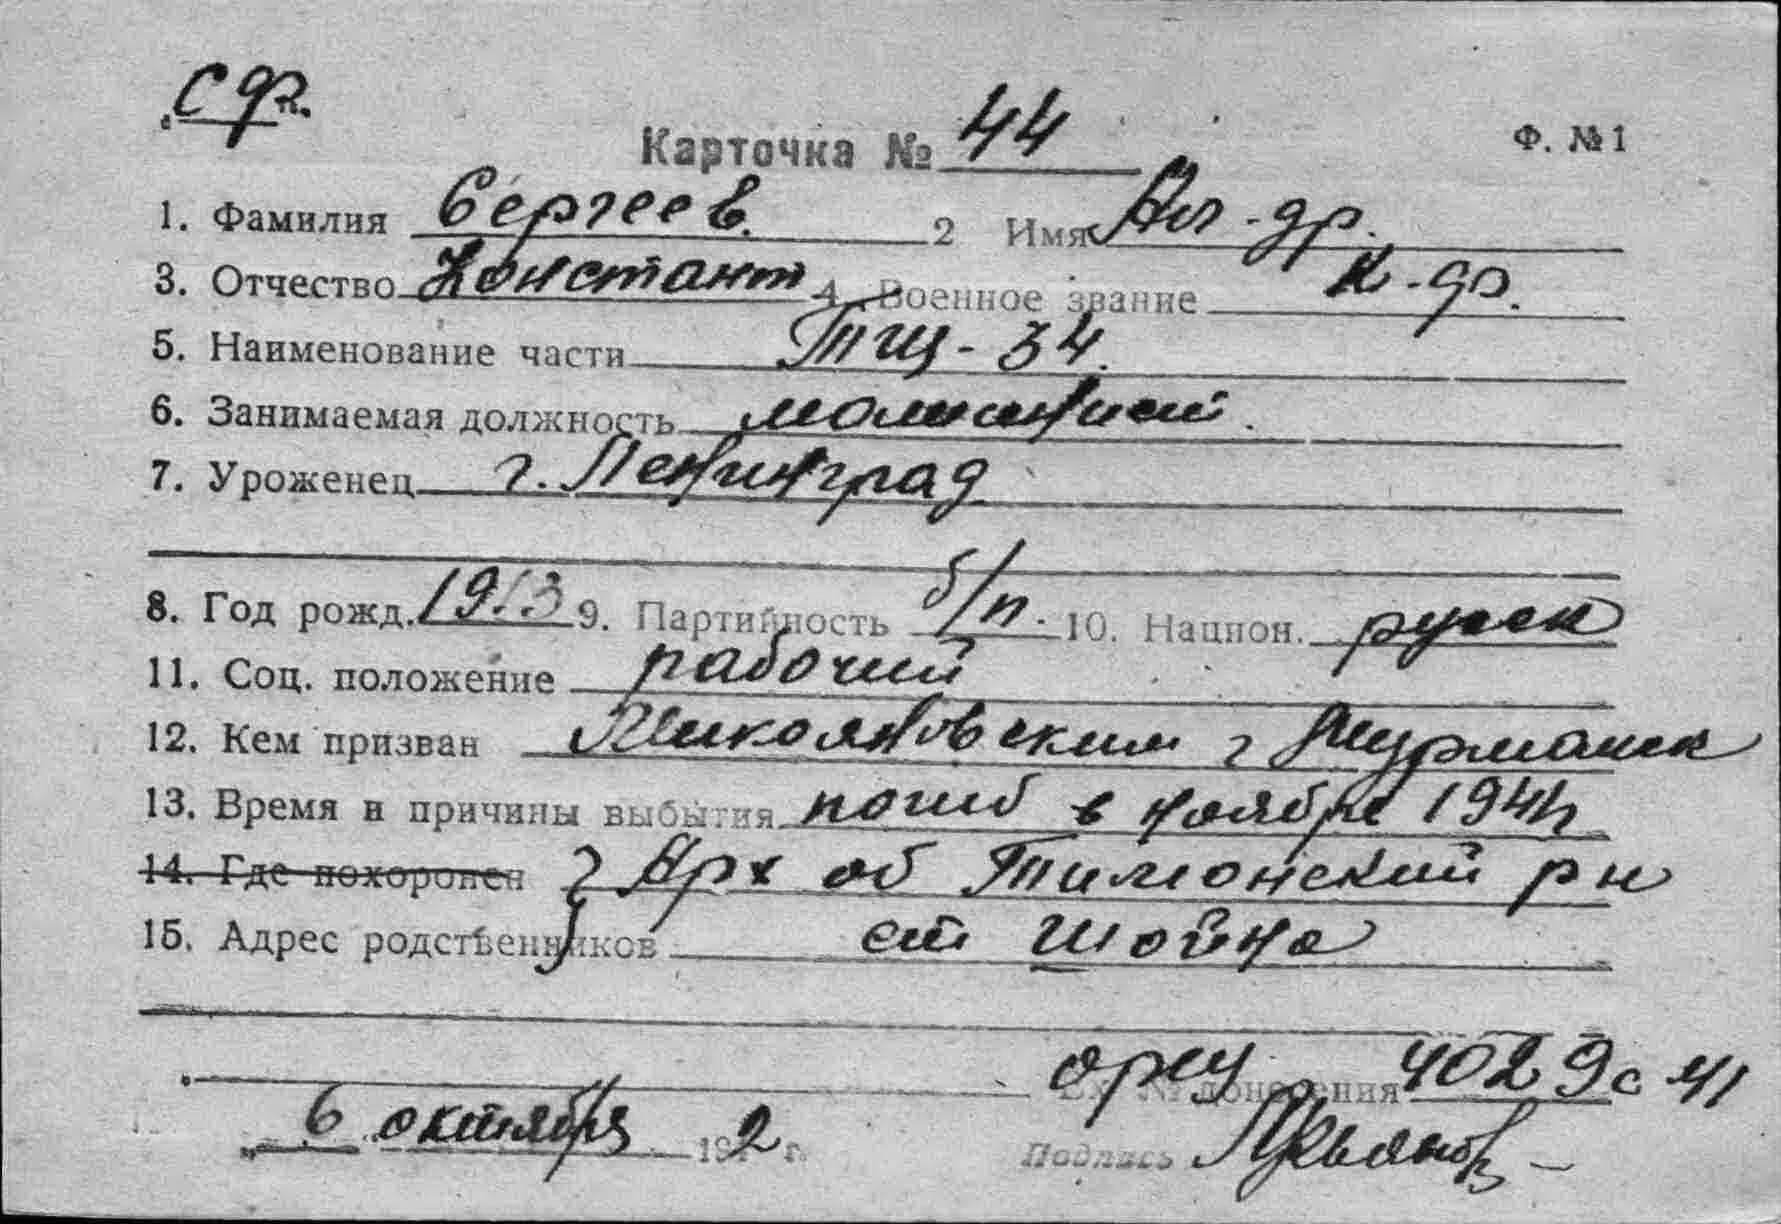 С ф.
Карточка № 44
Ф. № 1
1. Фамилия Сергеев. 2 Имя Ал-др.
3. Отчество Константи 4. Военное звание к-ф.
5. Наименование части ТЩ-34.
6. Занимаемая должность
7. Уроженец г. Ленинград
8. Год рожд. 1913 9. Партийность б/п. 10. Национ. русск
11. Соц. положение рабочий
12. Кем призван Микояновским г Мурманск
13. Время и причины выбытия погиб в ноябре 1941
14. Где похоронен Арх об Тимонский рн
15. Адрес родственников ст Шойна
орсу Вх № донесения 4029с 41
6 октября 19 2 г.
Подпись